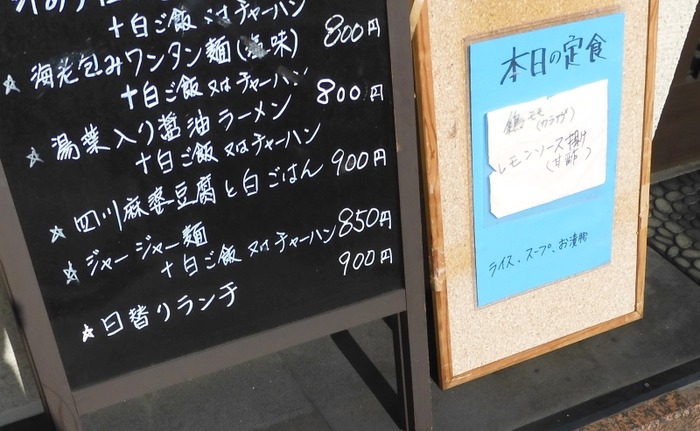 +白ご飯 又はチャーハン
800円
☆海老包みワンタン麺(塩味)
+白ご飯 又はチャーハン
800円
☆湯葉入り醤油ラーメン
+白ご飯 又はチャーハン
900円
☆四川麻婆豆腐と白ごはん
850円
☆ジャージャー麺
+白ご飯 又はチャーハン
900円
☆日替りランチ
本日の定食
鶏モモ
(カラアゲ)
レモンソース掛け
(甘酢)
ライス、スープ、お漬物